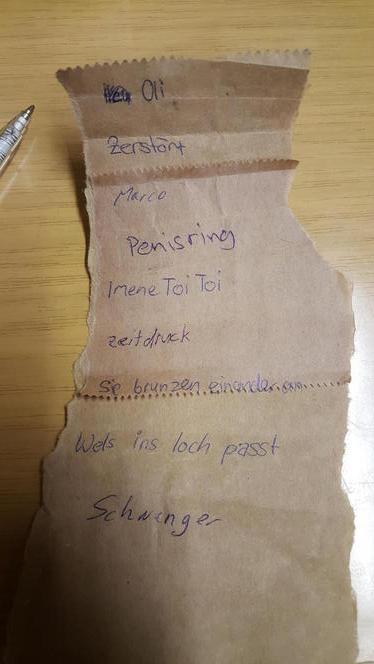 Oli
Zerstört
Marco
Penisring
Imene Toi Toi
zeitdruck
Sie brunzen einander an
Wels ins loch passt
Schwanger